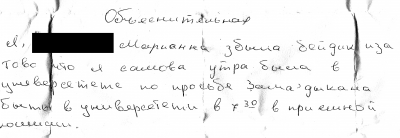 Объяснительная
Я, Марианна збыла бейдик иза
тово что я самова утра была в
универсетете по прозьбе Зам.дыкана
быть в университети в 7 30 в приемной
комисии.